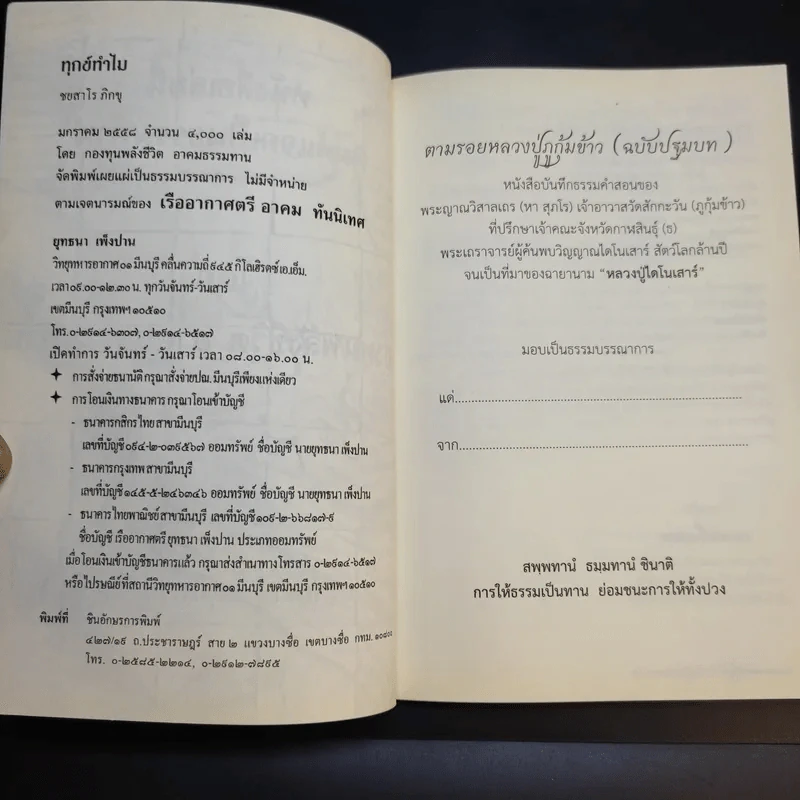 ทุกข์ทำไม
ชยสาโร ภิกขุ
มกราคม ๒๕๕๘ จำนวน ๔,๐๐๐ เล่ม
โดย กองทุนพลังชีวิต อาคมธรรมทาน
จัดพิมพ์เผยแผ่เป็นธรรมบรรณาการ ไม่มีจำหน่าย
ตามเจตนารมณ์ของ เรืออากาศตรี อาคม ทันนิเทศ
ยุทธนา เพ็งปาน
วิทยุทหารอากาศ ๐๑ มีนบุรี คลื่นความถี่ ๙๔๕ กิโลเฮิรตซ์ เอ.เอ็ม.
เวลา ๐๙.๐๐-๑๒.๓๐ น. ทุกวันจันทร์-วันเสาร์
เขตมีนบุรี กรุงเทพฯ ๑๐๕๑๐
โทร. ๐-๒๙๑๔-๖๓๐๗, ๐-๒๙๑๔-๖๕๑๗
เปิดทำการ วันจันทร์ - วันเสาร์ เวลา ๐๘.๐๐-๑๖.๐๐ น.
การสั่งจ่ายธนาณัติ กรุณาสั่งจ่าย ปณ. มีนบุรีเพียงแห่งเดียว
การโอนเงินทางธนาคาร กรุณาโอนเข้าบัญชี
- ธนาคารกสิกรไทย สาขามีนบุรี
เลขที่บัญชี ๐๙๔-๒-๐๓๙๕๖๗ ออมทรัพย์ ชื่อบัญชี นายยุทธนา เพ็งปาน
- ธนาคารกรุงเทพ สาขามีนบุรี
เลขที่บัญชี ๑๔๕-๕-๒๔๖๓๔๖ ออมทรัพย์ ชื่อบัญชี นายยุทธนา เพ็งปาน
- ธนาคารไทยพาณิชย์ สาขามีนบุรี เลขที่บัญชี ๑๐๙-๒-๖๖๘๑๗-๙
ชื่อบัญชี เรืออากาศตรี ยุทธนา เพ็งปาน ประเภทออมทรัพย์
เมื่อโอนเงินเข้าบัญชีธนาคารแล้ว กรุณาส่งสำเนาทางโทรสาร ๐-๒๙๑๔-๖๕๑๗
หรือไปรษณีย์ที่ สถานีวิทยุทหารอากาศ ๐๑ มีนบุรี เขตมีนบุรี กรุงเทพฯ ๑๐๕๑๐
พิมพ์ที่ ชินอักษรการพิมพ์
๔๒๗/๑๙ ถ.ประชาราษฎร์ สาย ๒ แขวงบางซื่อ เขตบางซื่อ กทม. ๑๐๘๐๐
โทร. ๐-๒๕๘๕-๒๒๑๔, ๐-๒๙๑๒-๗๘๙๕
ตามรอยหลวงปู่ภูกุ้มข้าว (ฉบับปฐมบท)
หนังสือบันทึกธรรมคำสอนของ
พระญาณวิสาลเถร (หา สุภโร) เจ้าอาวาสวัดสักกะวัน (ภูกุ้มข้าว)
ที่ปรึกษาเจ้าคณะจังหวัดกาฬสินธุ์ (ธ)
พระเถราจารย์ผู้ค้นพบวิญญาณไดโนเสาร์ สัตว์โลกล้านปี
จนเป็นที่มาของฉายานาม “หลวงปู่ไดโนเสาร์”
มอบเป็นธรรมบรรณาการ
แด่..........................................................................
จาก..........................................................................
สพฺพทานํ ธมฺมทานํ ชินาติ
การให้ธรรมเป็นทาน ย่อมชนะการให้ทั้งปวง